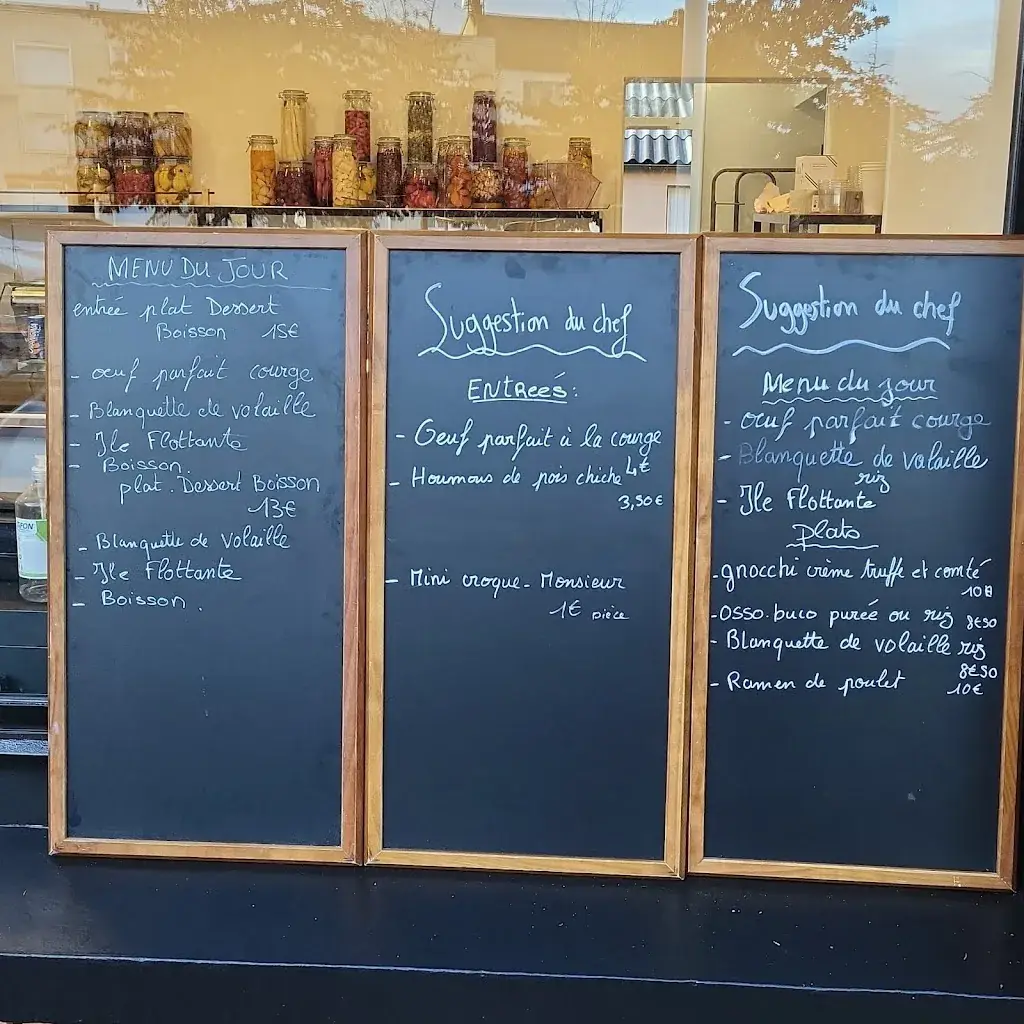 MENU DU JOUR
entrée plat Dessert
Boisson 15€
- oeuf parfait courge
- Blanquette de volaille
- Ile Flottante
- Boisson.
plat. Dessert Boisson
13€
- Blanquette de Volaille
- Ile Flottante
- Boisson.
Suggestion du chef
ENTReéS:
- Oeuf parfait à la courge
4€
- Houmous de pois chiche
3,50€
- Mini croque-Monsieur
1€ pièce
Suggestion du chef
Menu du jour
- oeuf parfait courge
- Blanquette de volaille
riz
- Ile Flottante
plats
- gnocchi crème truffe et comté
- Osso.buco purée ou riz 8€50
- Blanquette de volaille riz
8€50
- Ramen de poulet 10€